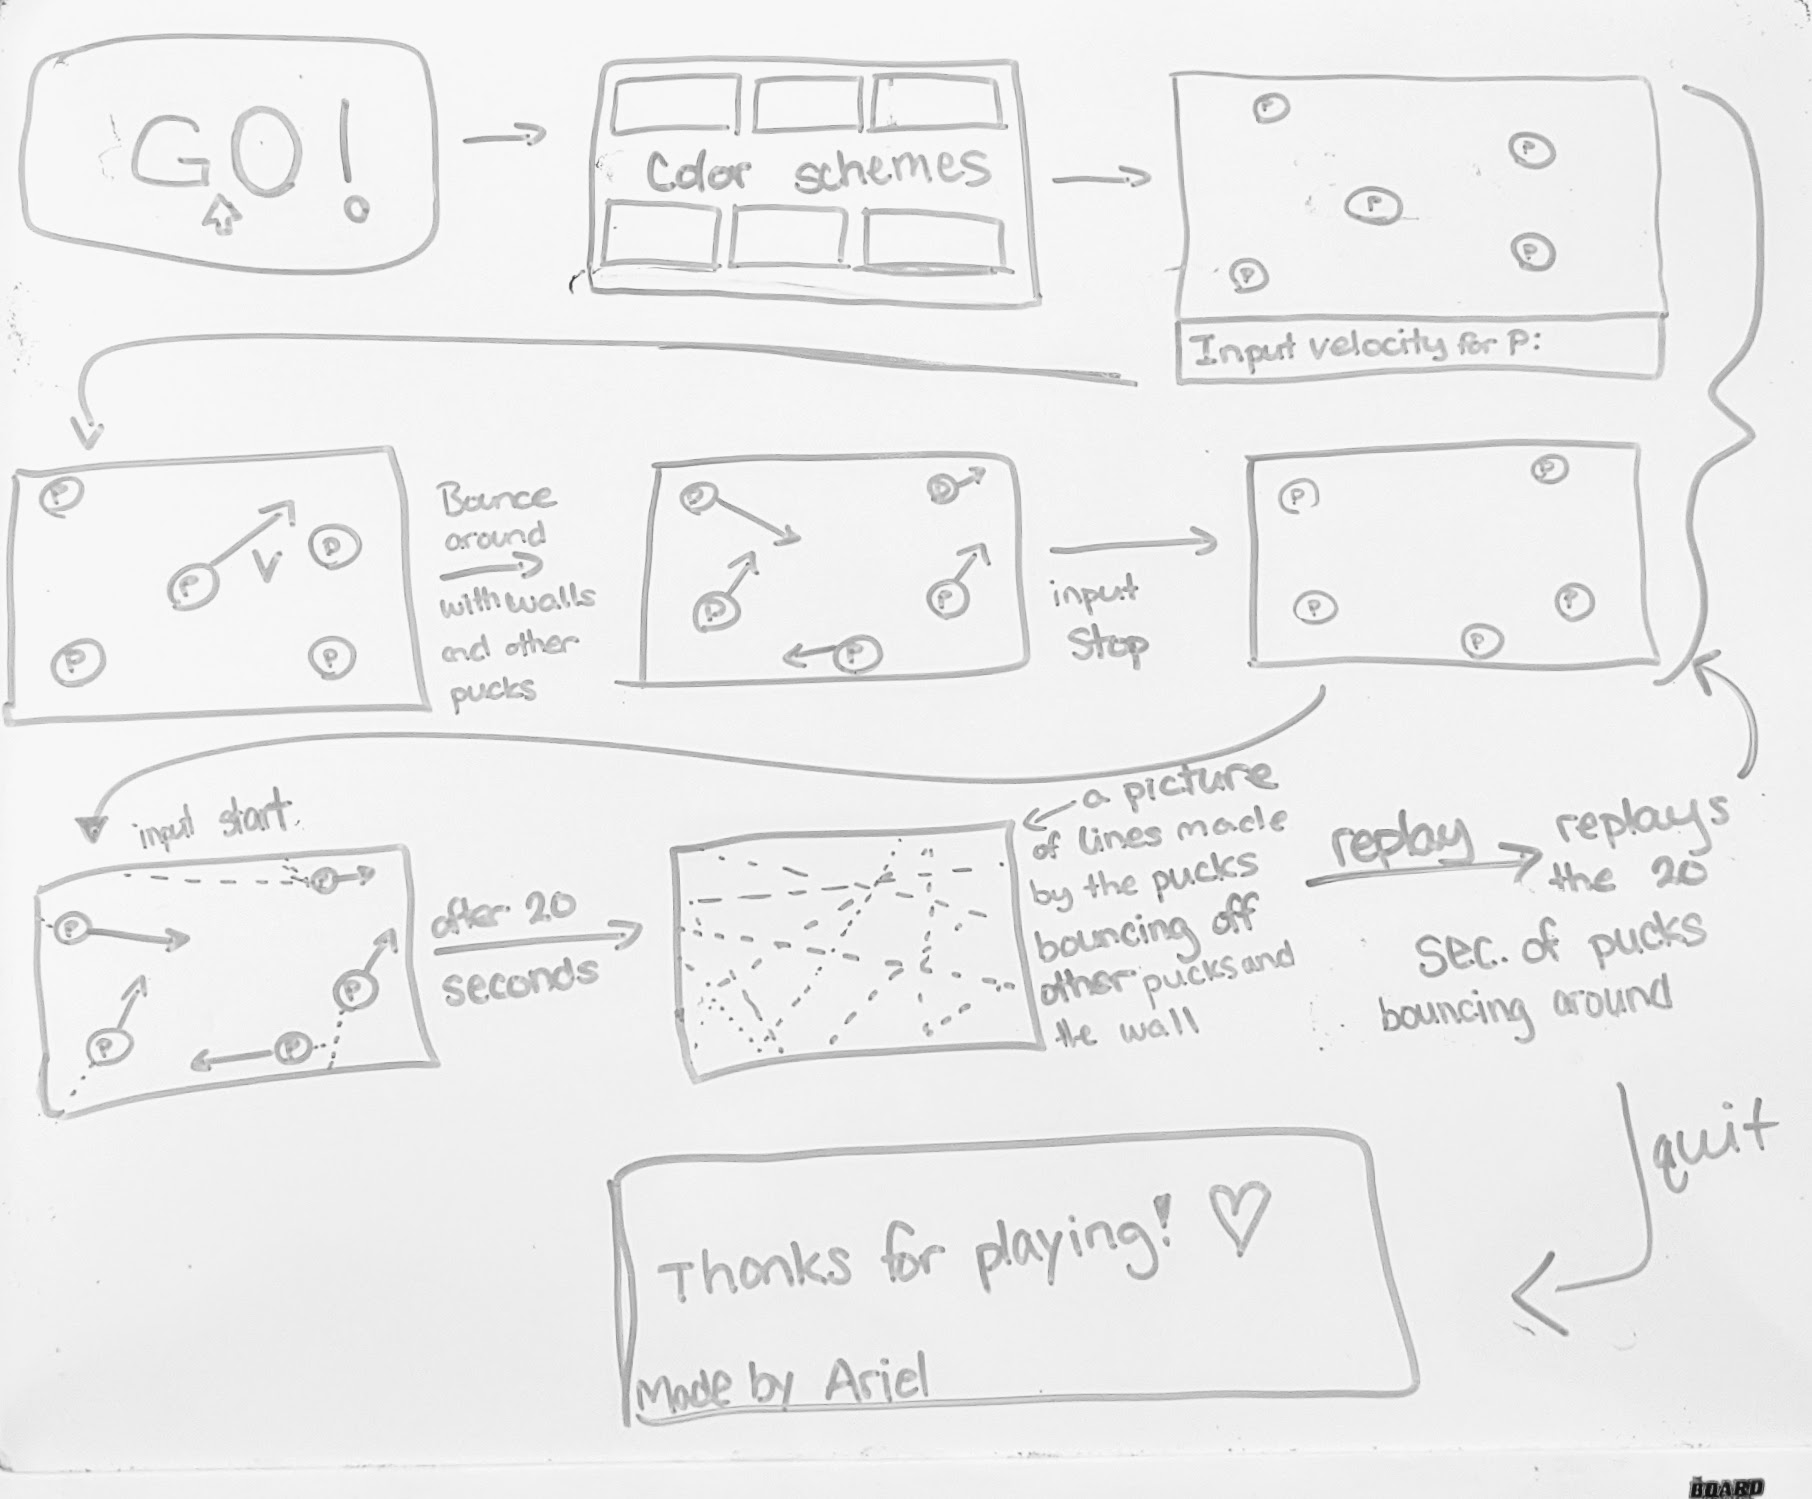 GO!
Color schemes
P
P
P
P
P
P
Input velocity for P:
P
P
V
D
P
P
Bounce
around
with walls
and other
pucks
D
D
D
P
P
input
Stop
P
P
P
P
P
input start
P
P
P
P
P
after 20
seconds
a picture
of lines made
by the pucks
bouncing off
other pucks and
the wall
replay
replays
the 20
sec. of pucks
bouncing around
quit
Thanks for playing! ♡
Made by Ariel
THE BOARD